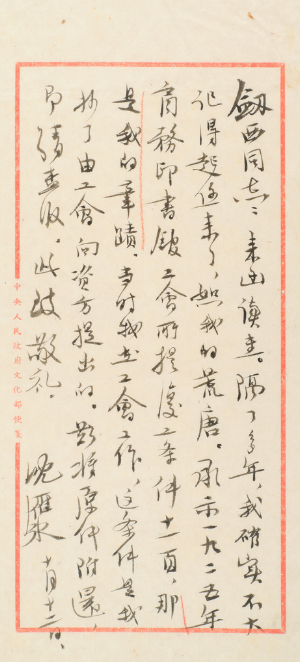 劍西同志：来函讀悉。隔了多年，我確实不大
记得起来了，恕我的荒唐。承示一九二五年
商務印書館工會所提復工条件十一頁，那
是我的筆蹟。当时我在工會工作，这条件是我
抄了由工會向资方提出的。兹将原件附還，
即請查收。此致敬礼。
沈雁冰 十月十二日
中央人民政府文化部便箋